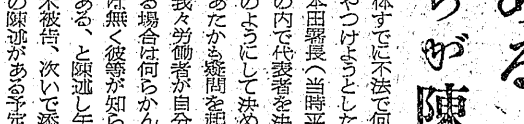 ある
らが陳
体すでに不法で何
やつけようとした
本田署長へ当時平
の内で代表者を決
のようにして決め
あたかも疑問を
我々労働者が自分
る場合は何らかん
は無く彼等が知ら
ある、と陳述し午
米被告、次いで
の陳述がある予定